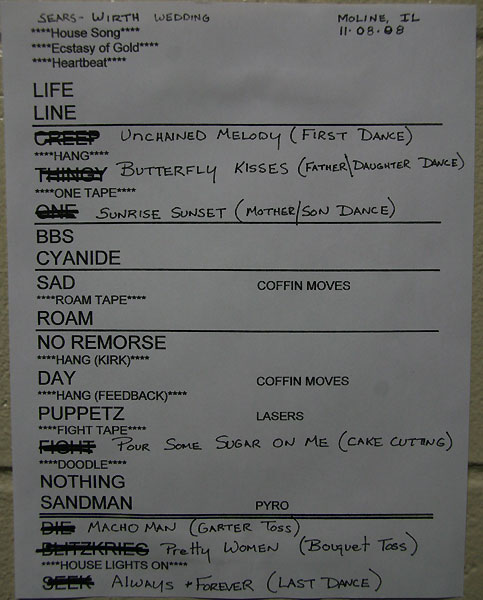 SEARS-WIRTH WEDDING MOLINE, IL
****House Song**** 11.08.08
****Ecstasy of Gold****
****Heartbeat****
LIFE
LINE
CREEP UNCHAINED MELODY (FIRST DANCE)
****HANG****
THINGY BUTTERFLY KISSES (FATHER\DAUGHTER DANCE)
****ONE TAPE****
ONE SUNRISE SUNSET (MOTHER/SON DANCE)
BBS
CYANIDE
SAD COFFIN MOVES
****ROAM TAPE****
ROAM
NO REMORSE
****HANG (KIRK)****
DAY COFFIN MOVES
****HANG (FEEDBACK)****
PUPPETZ LASERS
****FIGHT TAPE****
FIGHT POUR SOME SUGAR ON ME (CAKE CUTTING)
****DOODLE****
NOTHING
SANDMAN PYRO
DIE MACHO MAN (GARTER TOSS)
BLITZKRIEG PRETTY WOMEN (BOUQUET TOSS)
****HOUSE LIGHTS ON****
SEEK ALWAYS + FOREVER (LAST DANCE)